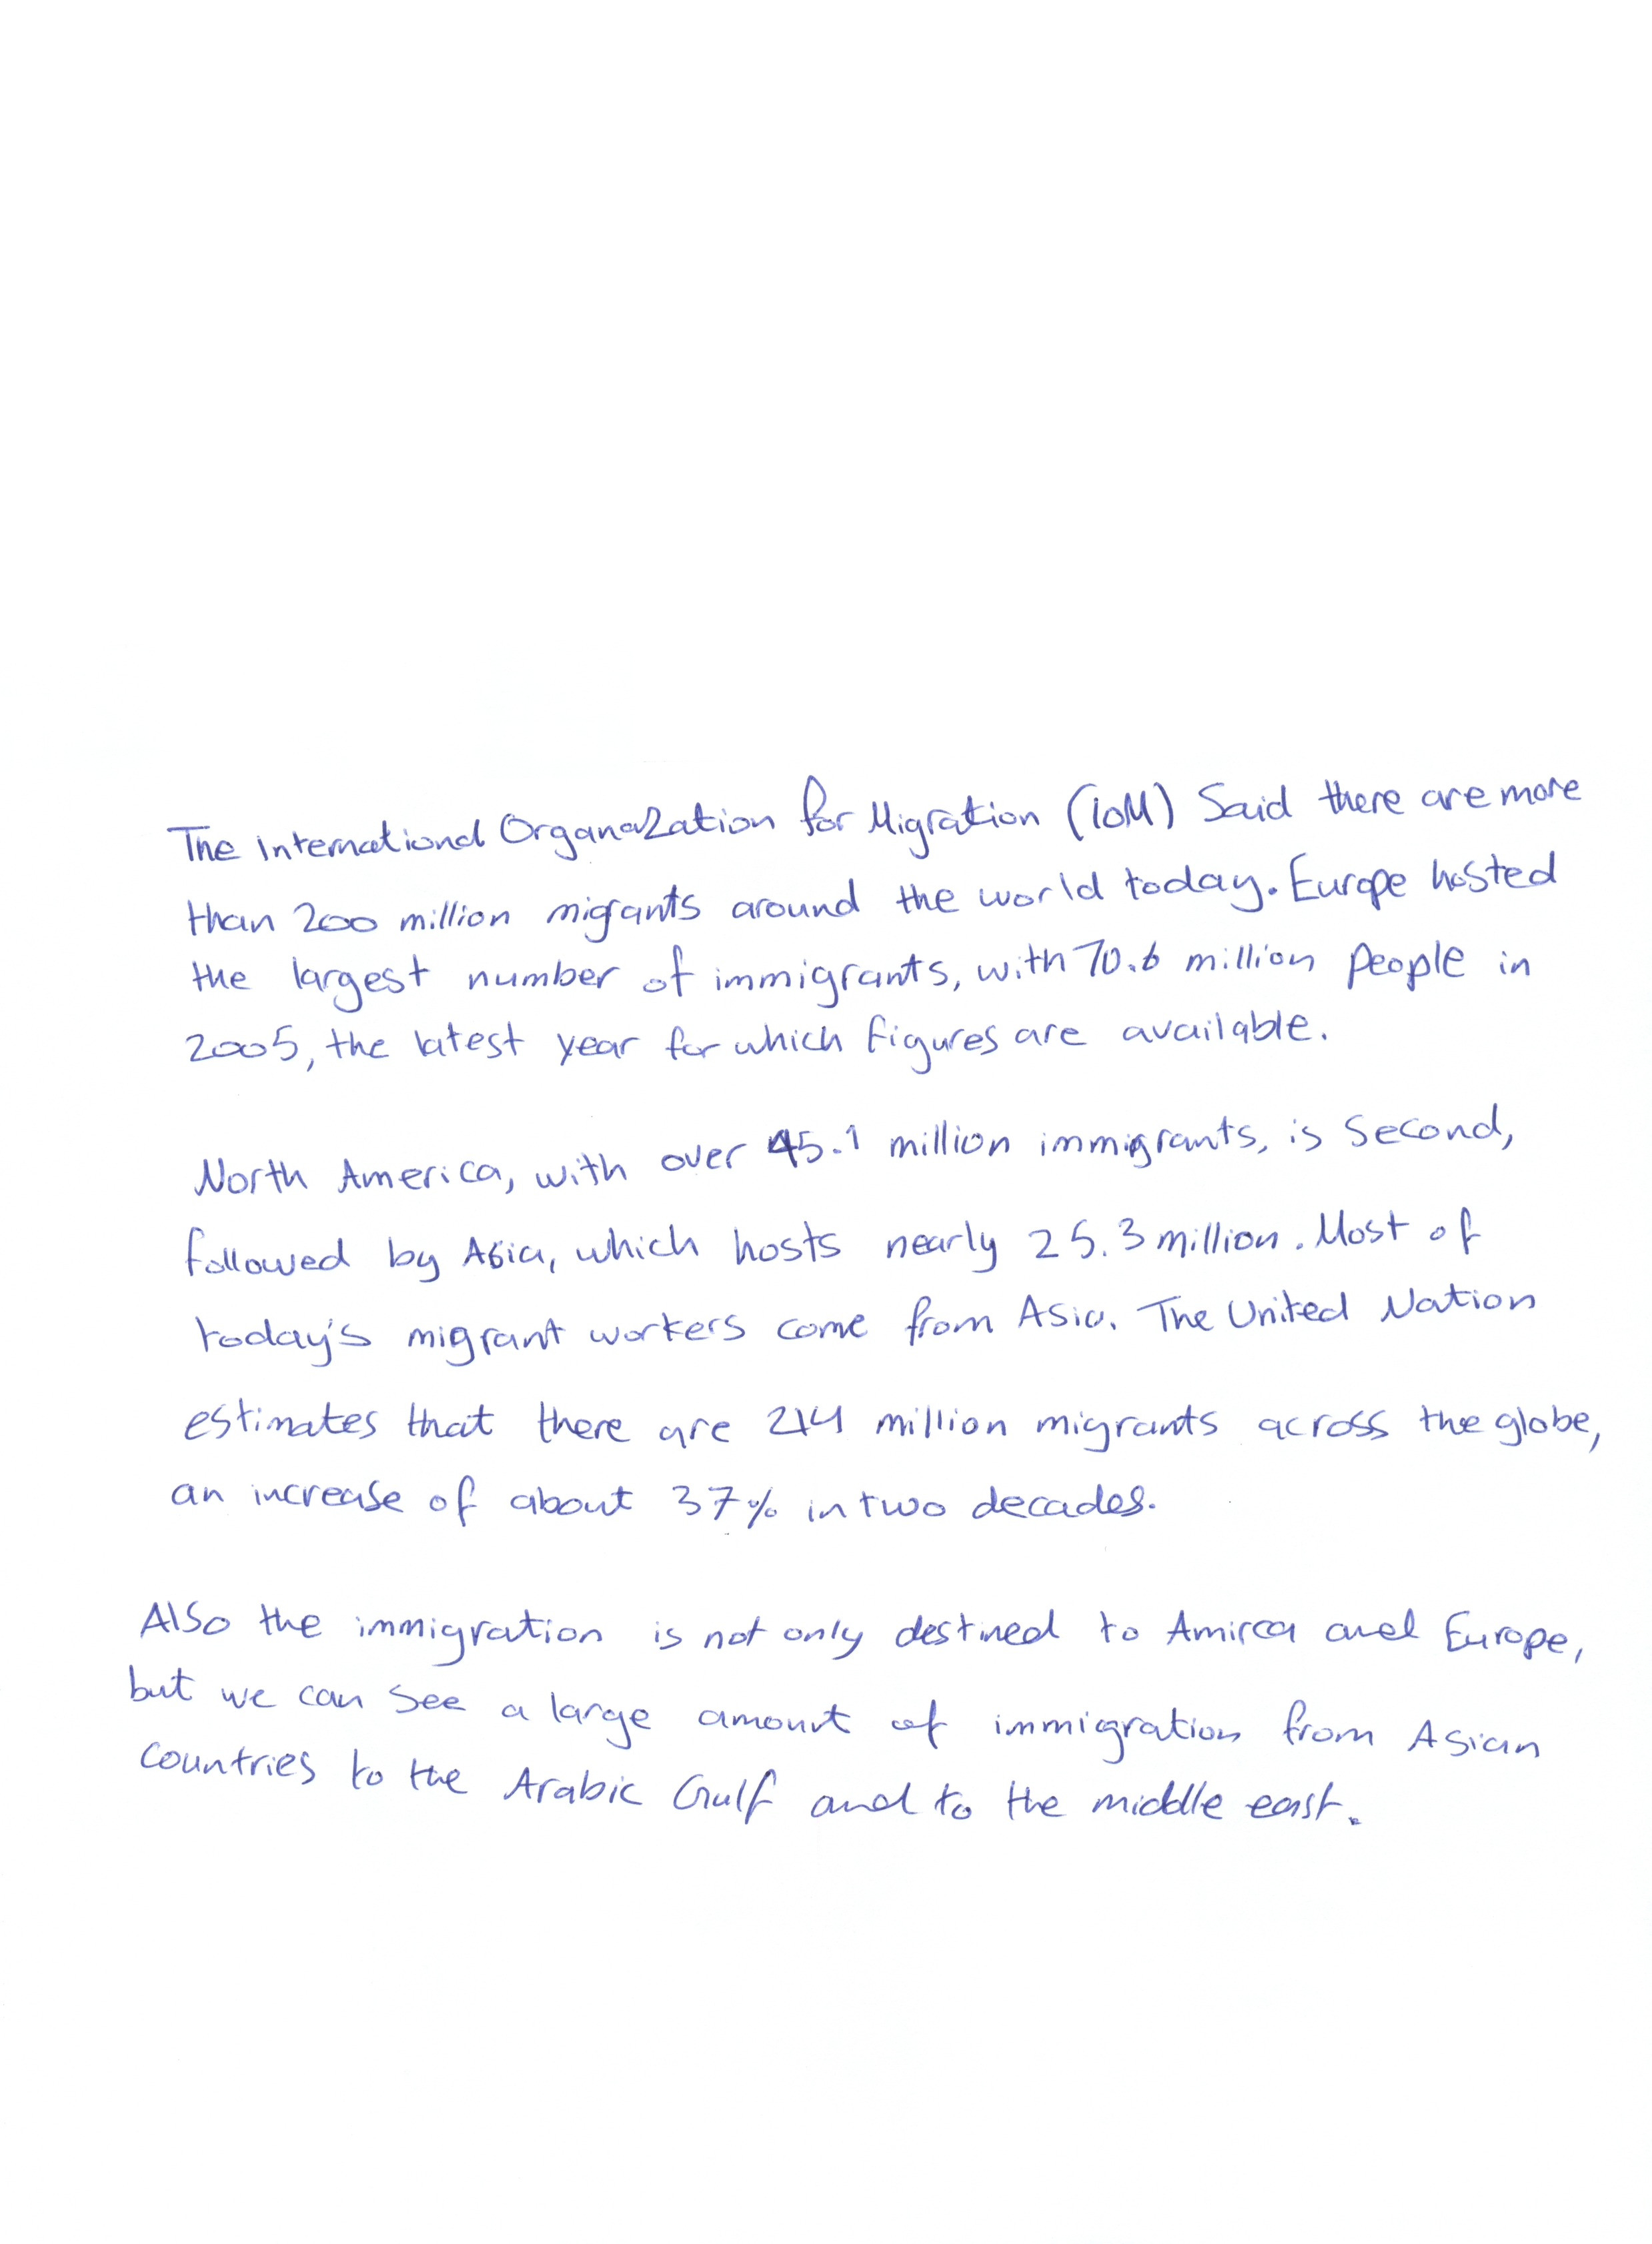 The International Organazation for Migration (IOM) Said there are more
than 200 million migants around the world today. Europe hosted
the largest number of immigrants, with 70.6 million people in
2005, the latest year for which figures are available.
North America, with over 45.1 million immigrants, is second,
followed by Asia, which hosts nearly 25.3 million. Most of
today's migrant workers come from Asia. The United Nation
estimates that there are 214 million migrants across the globe,
an increase of about 37% in two decades.
Also the immigration is not only destined to Amirca and Europe,
but we can see a large amount of immigration from Asian
countries to the Arabic Gulf and to the middle east.